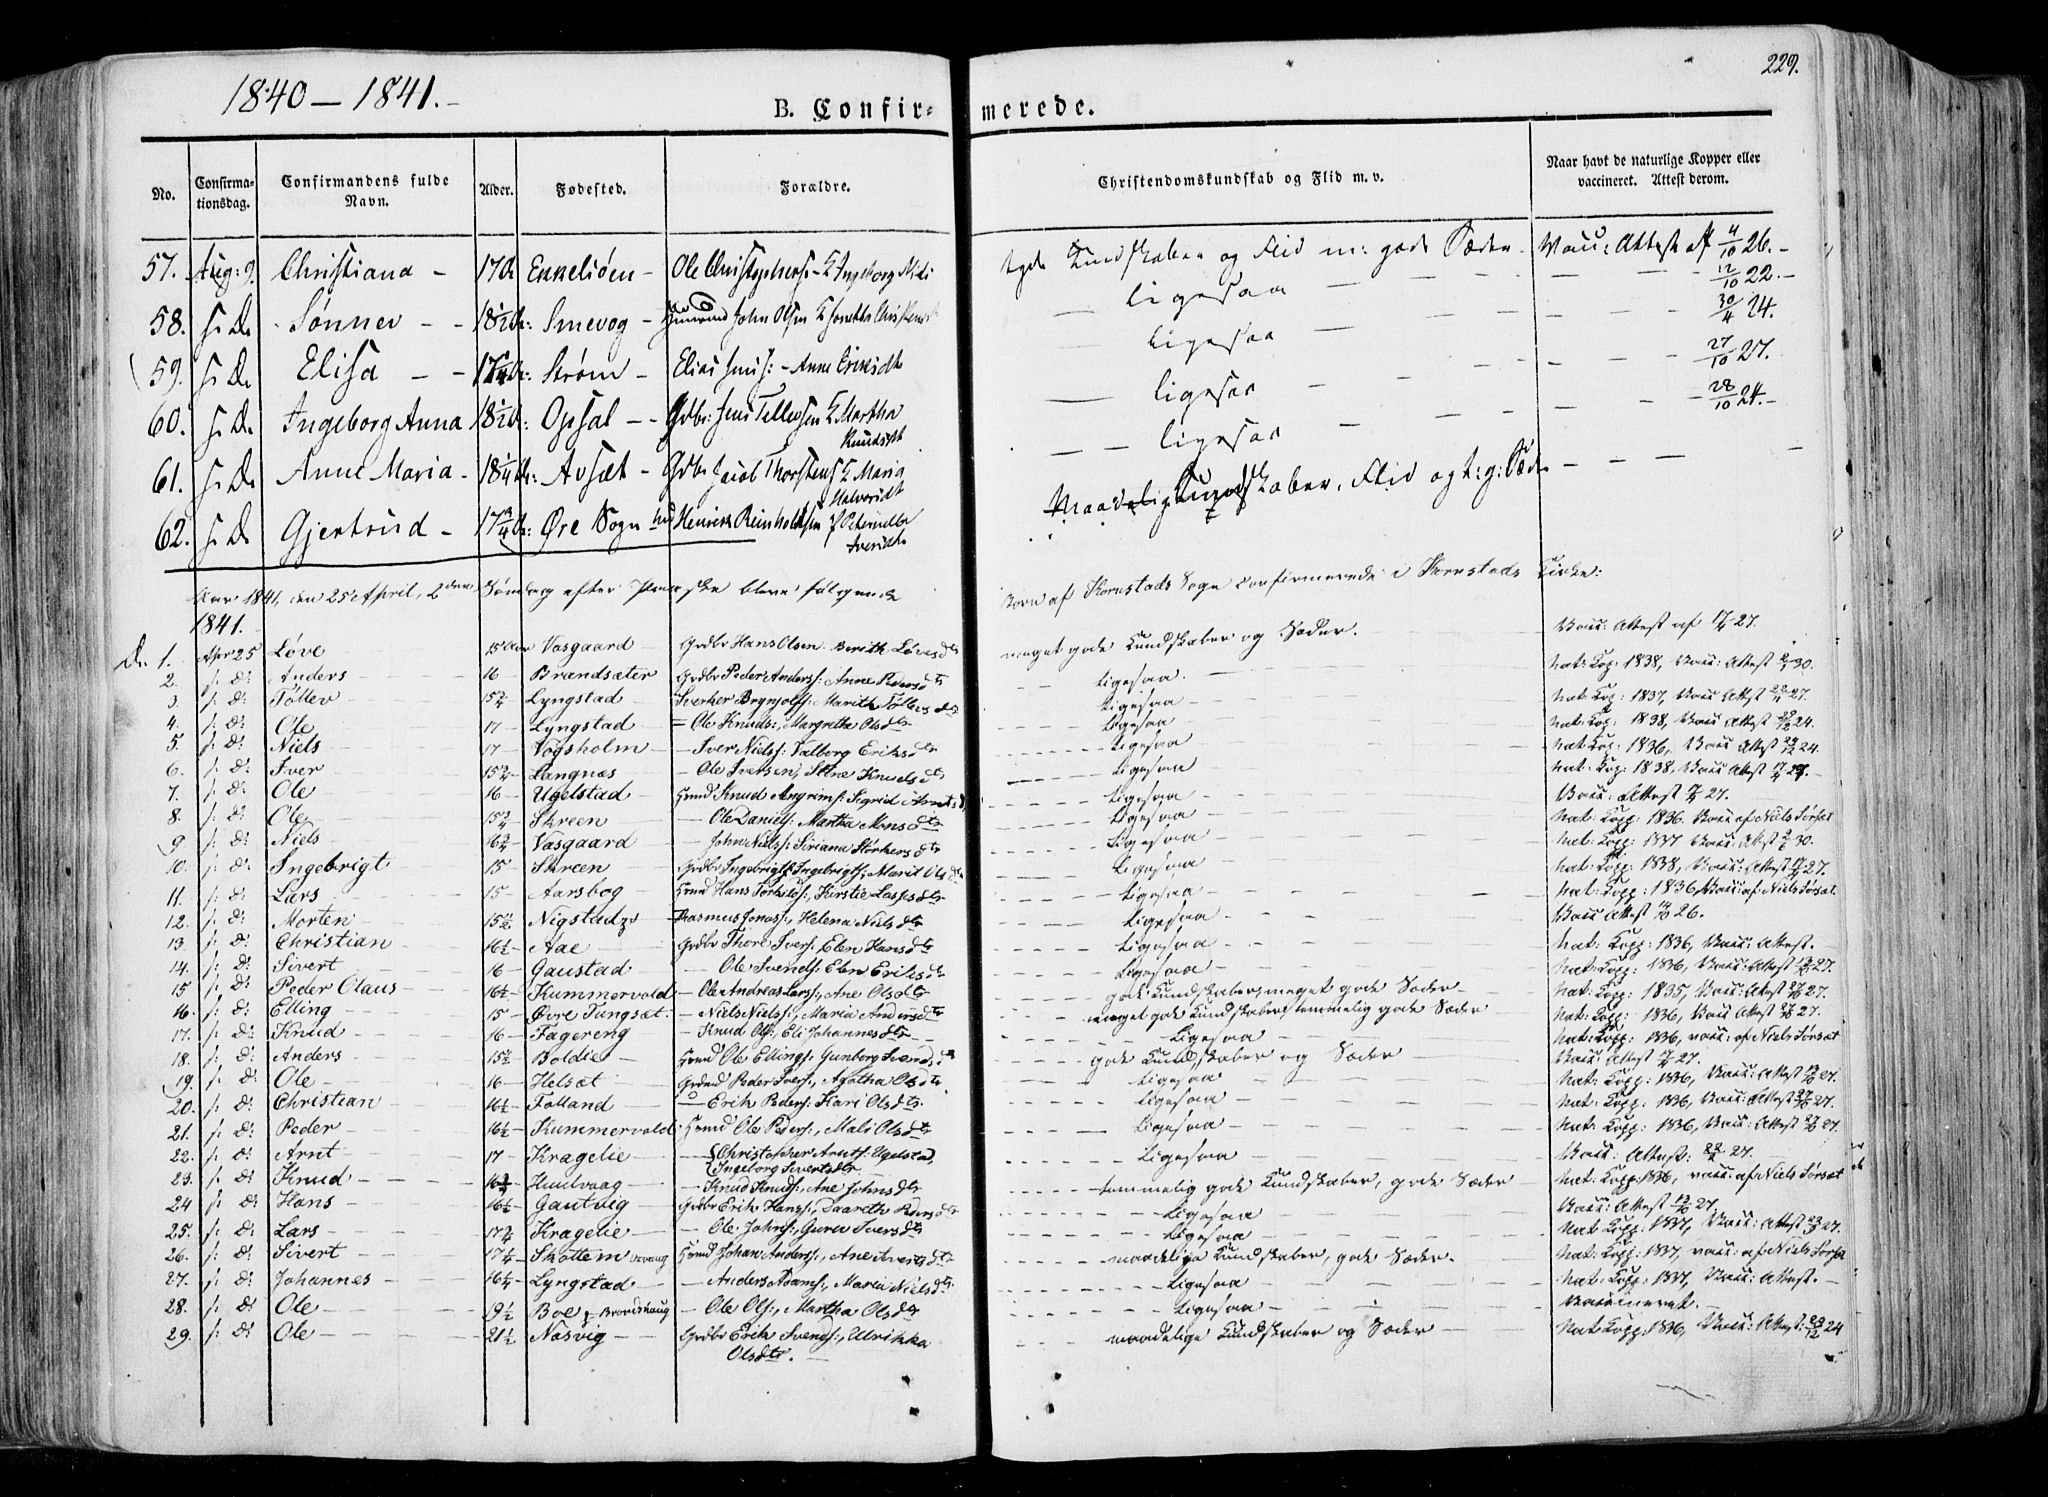 1840 — 1841. 229.
B. Confirmerede.
No. Confirmationsdag. Confirmandens fulde Navn. Alder. Fødested. Forældre. Christendomskundskab og Flid m. v. Naar havt de naturlige Kopper eller vaccineret. Attest derom.
57. Aug: 9. Christiana — Ole og Flid m: gode Sæder Vacc: Attest af 26.
58. s. D. Sønnev — 18 1/2 Smevog — John Olsen ligesaa 22.
59. s. D. Elisa — Strøm — Elias Jens s: — Anne ligesaa 24.
60. s. D. Ingeborg Anna 18 1/2 Opsal — Gdbr: Jens Tellefsen & Martha Knudsdt ligesaa 27/10 27.
61. s. D. Anne Maria — 18 1/4 Avsæt — Gdbr Jacob Thorstens & Maria Halvorsdt ligesaa 28/10 24.
62. s. D. Gjertrud — 17 3/4 Øre Sogn Henrik Reinholdtsen Iversdt Maadelig Kundskaber, Flid og t: g: Sæder
Aar 1841, den 25 April, 2den Søndag efter Paaske bleve følgende Børn af Kornstads Sogn confirmerede i Kornstads Kirke:
1841.
1. Apr 25 Løve 15 Aar Vasgaard Gdbr Hans Olsen Berith Løvesdtr meget gode Kundskaber og Sæder. Vacc: Attest af 27.
2. s: d: Anders 16 Brandsæter Gdbr Peder Anders: Anne Pedersdtr ligesaa. Nat: Kop: 1838, Vacc: Attest 30.
3. s: d: Tollev 15 3/4 Lyngstad Sverker Brynjolfs: Marith Tollevsdtr ligesaa Nat: Kop: 1837, Vacc Attest 27.
4. s: d: Ole 17 Lyngstad — Ole Knuds:, Margrethe Olsdtr ligesaa Nat: Kop: 1838, Vacc Attest 24.
5. s: d: Niels 17 Vogsholm — Iver Niels: Valborg Eriksdtr ligesaa Nat: Kop: 1836, Vacc Attest 24.
6. s: d: Iver 15 3/4 Langnæs — Ole Iversen, Knudsdtr ligesaa Nat: Kop: 1838, Vacc Attest 27.
7. s: d: Ole 16 Ugelstad Hmd Knud Angrims: Sigrid ligesaa Vacc: Attest 27.
8. s: d: Ole 15 3/4 Skreen — Ole Daniels: Martha Monsdtr ligesaa Nat: Kopp: 1836. Vacc af Niels Sørsæt
9 s: d: Niels 16 3/4 Vasgaard — John Niels: Siriana Størkersdtr ligesaa Nat: Kopp: 1837 Vacc: Attest 30.
10. s: d: Ingebrigt 15 Skreen Gdbr Ingebrigt Ingebrigts: Marit Olsdtr ligesaa Nat: Kopp: 1838, Vacc: Attest 27.
11. s: d: Lars 15 Aarsbog Hmd Hans Torkilds: Kirstie Lassesdtr ligesaa Nat: Kopp: 1836, Vacc: af Niels Sørsæt
12. s: d: Morten 15 1/2 Nigstad Rasmus Jonas:, Helena Nielsdtr ligesaa Vacc Attest 26.
13. s: d: Christian 16 1/2 Aae Gdbr Thore Ivers: Elen Hansdtr ligesaa Nat: Kopp: 1836, Vacc: Attest.
14. s: d: Sivert 16 Gaustad — Ole Svends: Elen Eriksdtr ligesaa Nat: Kopp: 1836, Vacc: Attest 27.
15 s: d: Peder Olaus 16 1/2 Kummervold — Ole Andreas Lars:, Ane Olsdtr gode Kundskaber, meget gode Sæder Nat: Kopp: 1835, Vacc: Attest 27.
16. s: d: Elling 15 Øvre Tungsæt — Niels Niels:, Maria Andersdtr meget gode Kundskaber, temmelig gode Sæder Nat: Kopp: 1836, Vacc Attest 27.
17. s: d: Knud 16 Fagereng — Knud Ols: Eli Johannesdtr ligesaa Nat: Kopp: 1836, vacc: af Niels Sørsæt
18. s: d: Anders 15 1/2 Boldie Hmd Ole Ellings: Gunborg Svendsdtr gode Kundskaber og Sæder Vacc: Attest 27.
19. s: d: Ole 16 Helsæt Gdmd Peder Ivers:, Agatha Olsdtr ligesaa Nat: Kopp: 1836, Vacc: Attest 27.
20. s: d: Christian 16 1/2 Folland — Erik Peders: Kari Olsdtr. ligesaa Nat: Kopp: 1836, Vacc: Attest 27.
21. s: d: Peder 16 1/2 Kummervold Hmd Ole Peders:, Mali Olsdtr ligesaa Nat: Kopp: 1836, Vacc: Attest 27.
22. s: d: Arnt 17 Kragelie — Christopher Arnts: Ugelstad, Ingeborg Sivertsdtr ligesaa Vacc: Attest: 27.
23. s: d: Knud Huulvaag — Knud Knuds:, Ane Johnsdtr temmelig gode Kundskaber, gode Sæder Nat: Kopp: 1836, vacc: af Niels Sørsæt
24 s: d: Hans 16 1/2 Gautvig Gdbr Erik Hans:, Daareth Pedersdtr ligesaa Vacc: Attest 27.
25. s: d: Lars 17 3/4 Kragelie — Ole Johns:, Guru Iversdtr ligesaa Nat: Kopp: 1837, Vacc: Attest 27.
26. s: d: Sivert 17 1/4 Skottem Hmd Johan Anders:, Ane Sivertsdtr maadelige Kundskaber, gode Sæder. Nat: Kopp: 1837, vacc: af Niels Sørsæt
27. s: d: Johannes 16 3/4 Lyngstad — Anders Adams:, Maria Nielsdtr ligesaa Nat: Kopp: 1837, Vacc: Attest.
28. s: d: Ole 19 1/2 Boe Brandshaug — Ole Ols:, Martha Olsdtr ligesaa Vaccineret.
29. s: d: Ole 21 1/2 Nasvig Gdbr Erik Svends:, Ulrikka Olsdtr. maadelige Kundskaber og Sæder Nat: Kopp: 1836, Vacc: Attest: 24